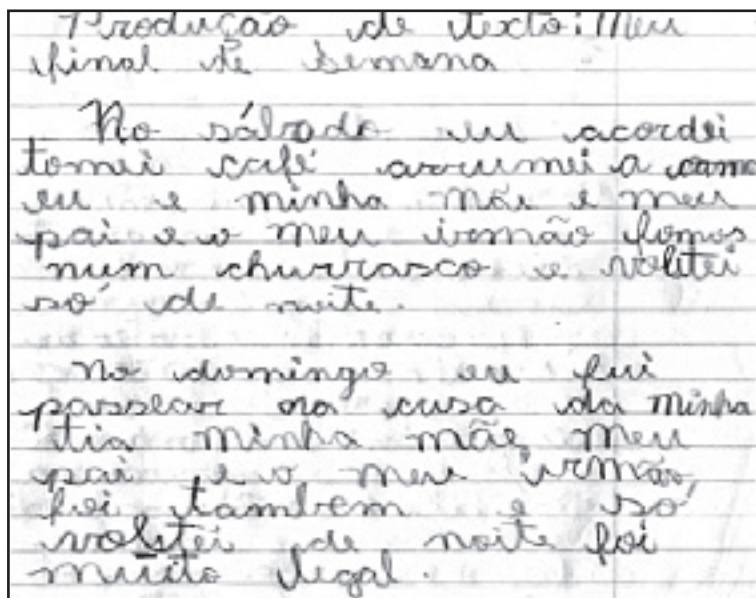 Produção de texto: Meu
final de semana
No sábado eu acordei
tomei café arrumei a cama
eu e minha mãe e meu
pai e o meu irmão fomos
num churrasco e voltei
só de noite.
No domingo eu fui
passear na casa da minha
tia minha mãe meu
pai e o meu irmão
foi tambem e só
voltei de noite foi
muito legal.